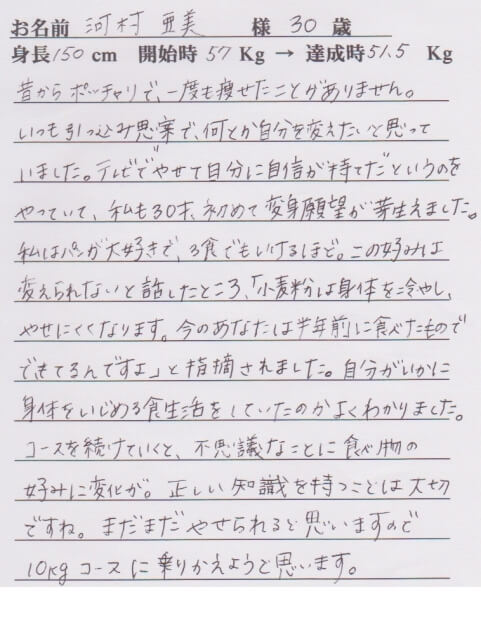 お名前 河村 亜美 様 30 歳
身長150 cm 開始時 57 Kg → 達成時51.5 Kg
昔からポッチャリで、一度も痩せたことがありません。
いつも引っ込み思案で、何とか自分を変えたいと思って
いました。テレビでやせて自分に自信が持てだというのを
やっていて、私も30才、初めて変身願望が芽生えました。
私はパンが大好きで、3食でもいけるほど。この好みは
変えられないと話したところ、「小麦粉は身体を冷やし、
やせにくくなります。今のあなたは半年前に食べたもので
できてるんですよ」と指摘されました。自分がいかに
身体をいじめる食生活をしていたのかよくわかりました。
コースを続けていくと、不思議なことに食べ物の
好みに変化が。正しい知識を持つことは大切
ですね。まだまだやせられると思いますので
10kgコースに乗りかえようと思います。